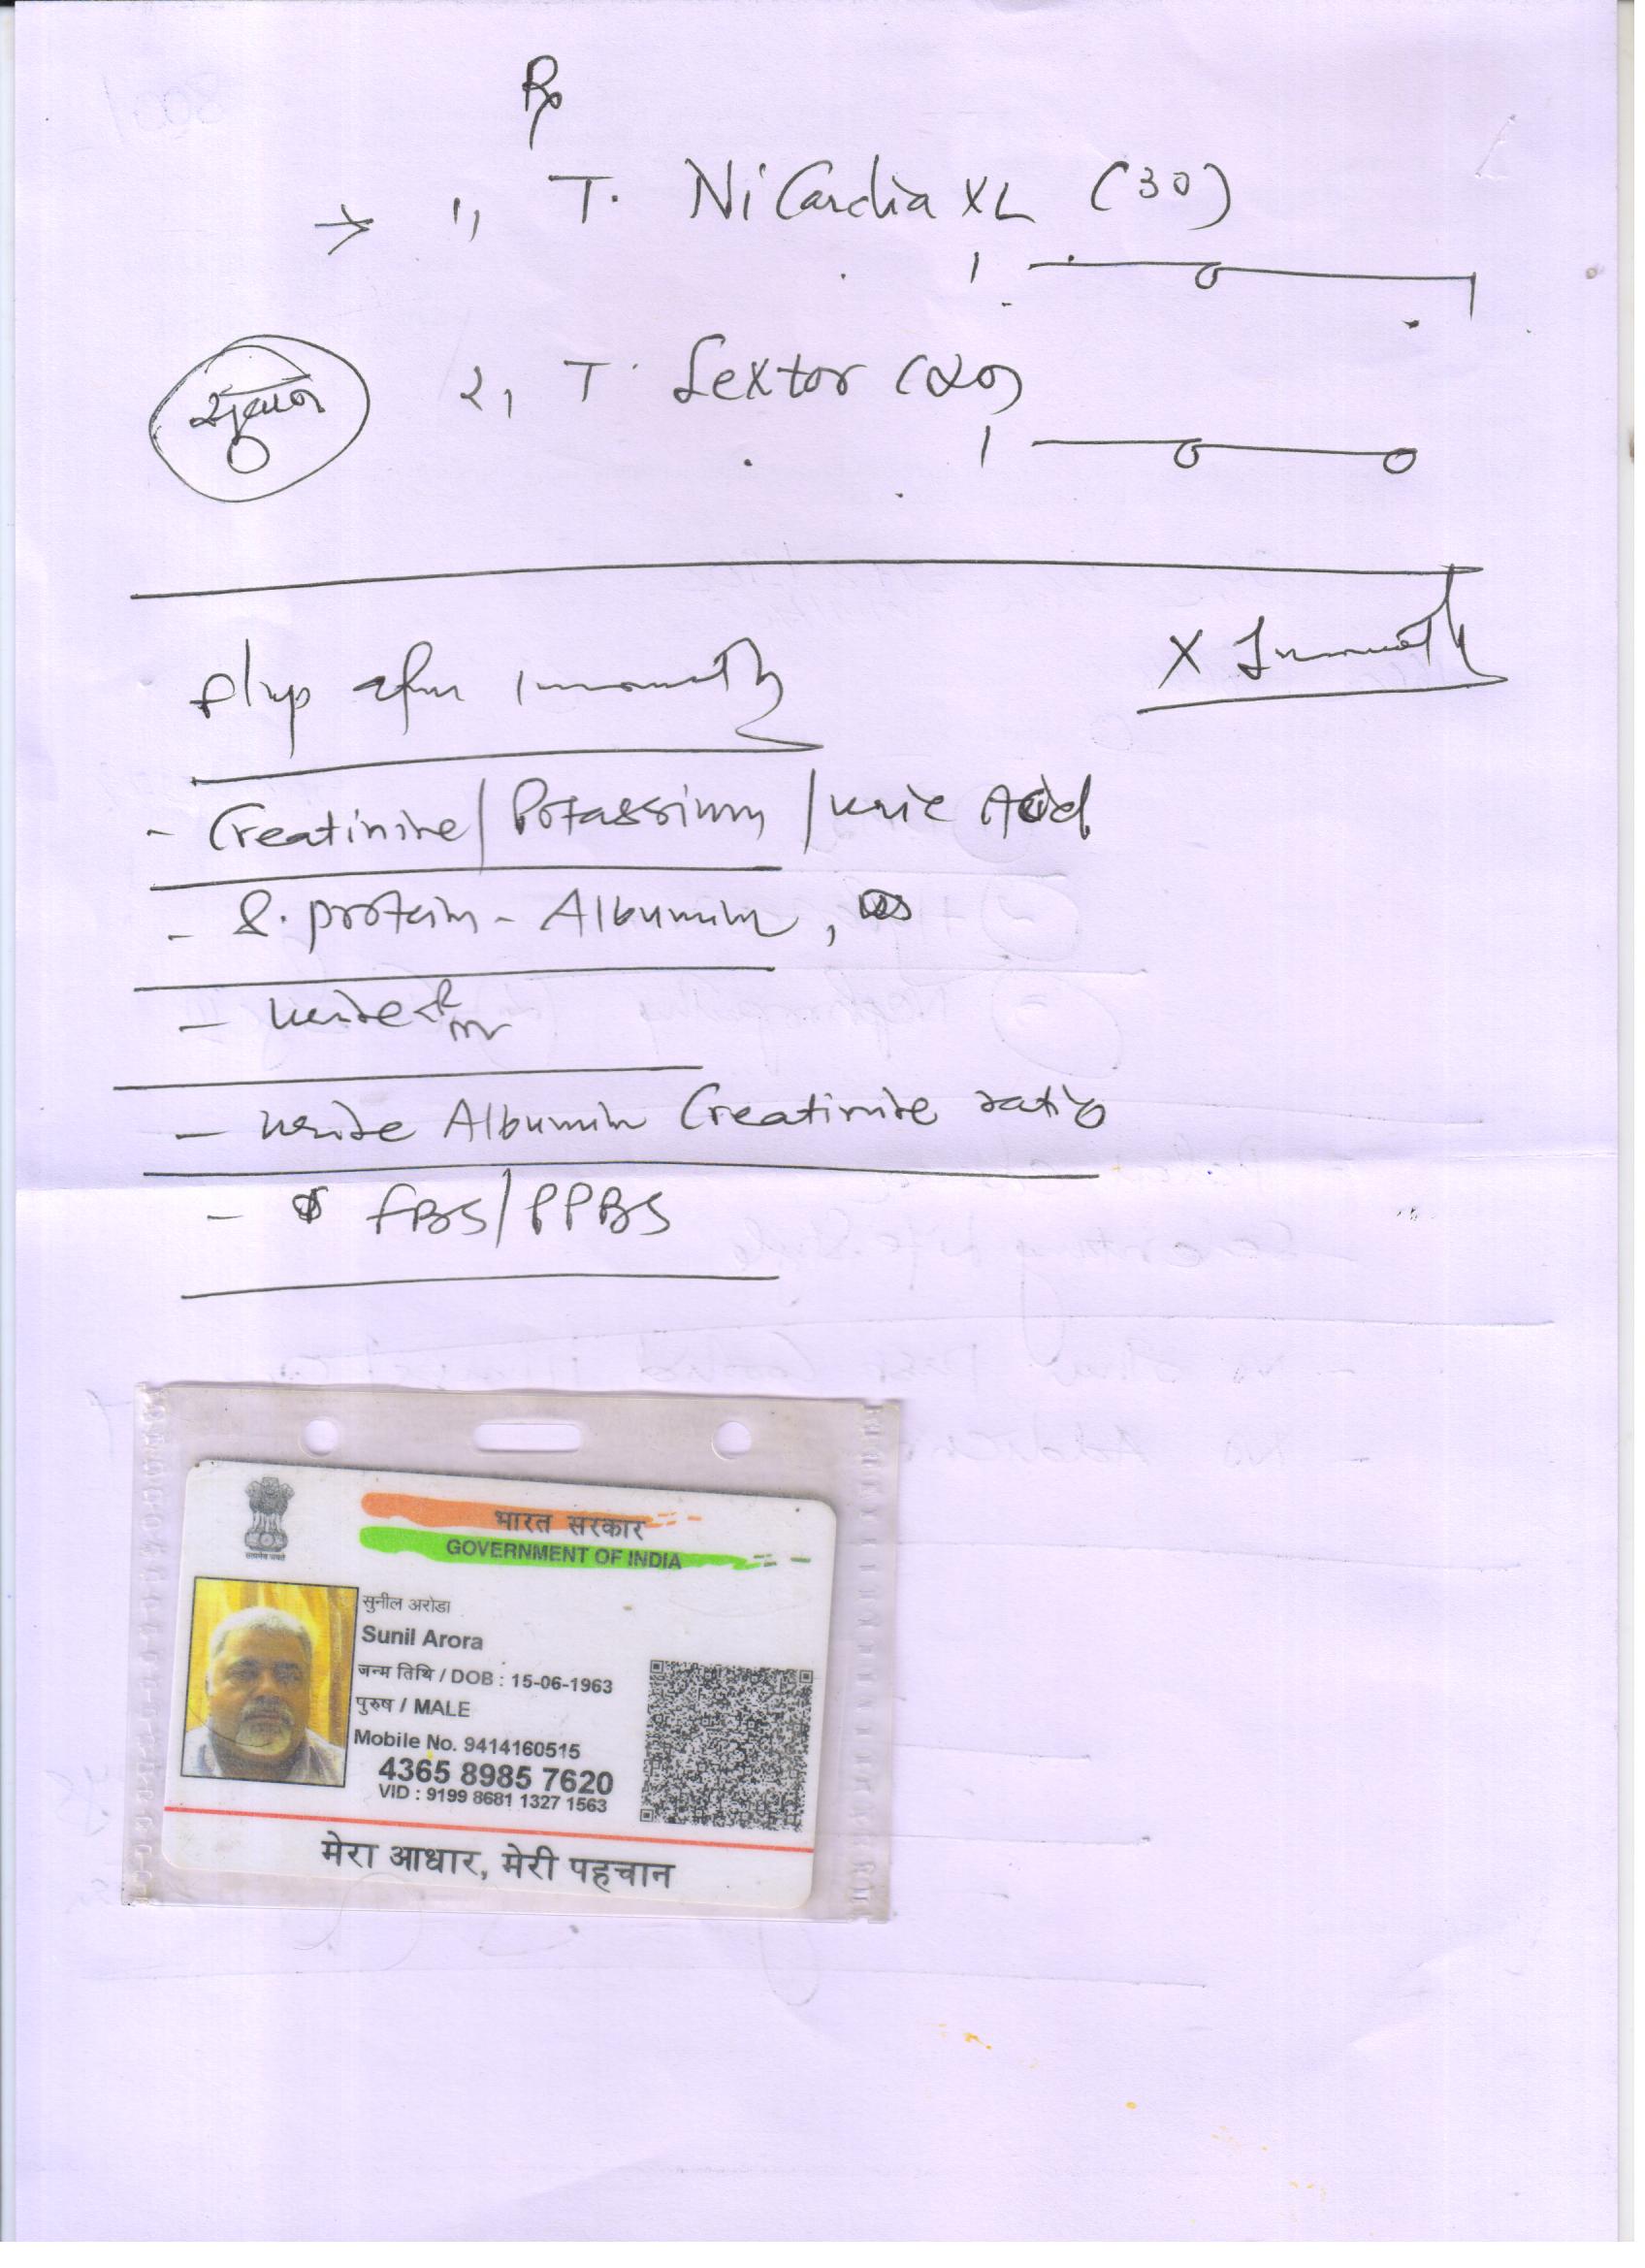 Rx
→ 1, T. Nicardia XL (30)
1 — 0 — 1
2, T. Lextor (20)
1 — 0 — 0
f/up after 1 month
X 1 month
- Creatinine / Potassium / Uric Acid
- S. protein - Albumin,
- Urine R/m
- Urine Albumin Creatinine ratio
- FBS/PPBS
भारत सरकार
GOVERNMENT OF INDIA
सुनील अरोडा
Sunil Arora
जन्म तिथि / DOB : 15-06-1963
पुरुष / MALE
Mobile No. 9414160515
4365 8985 7620
VID : 9199 8681 1327 1563
मेरा आधार, मेरी पहचान